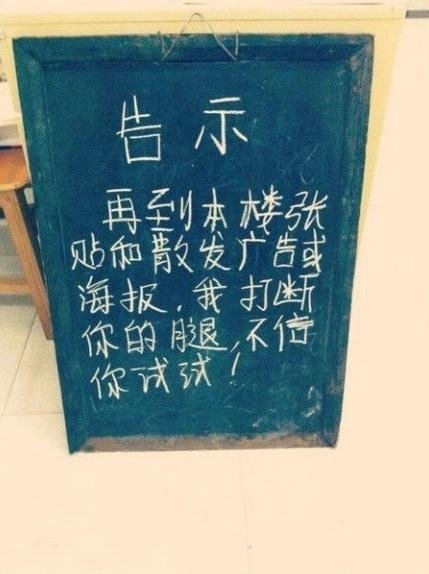 告示
再到本楼张
贴和散发广告或
海报，我打断
你的腿，不信
你试试！